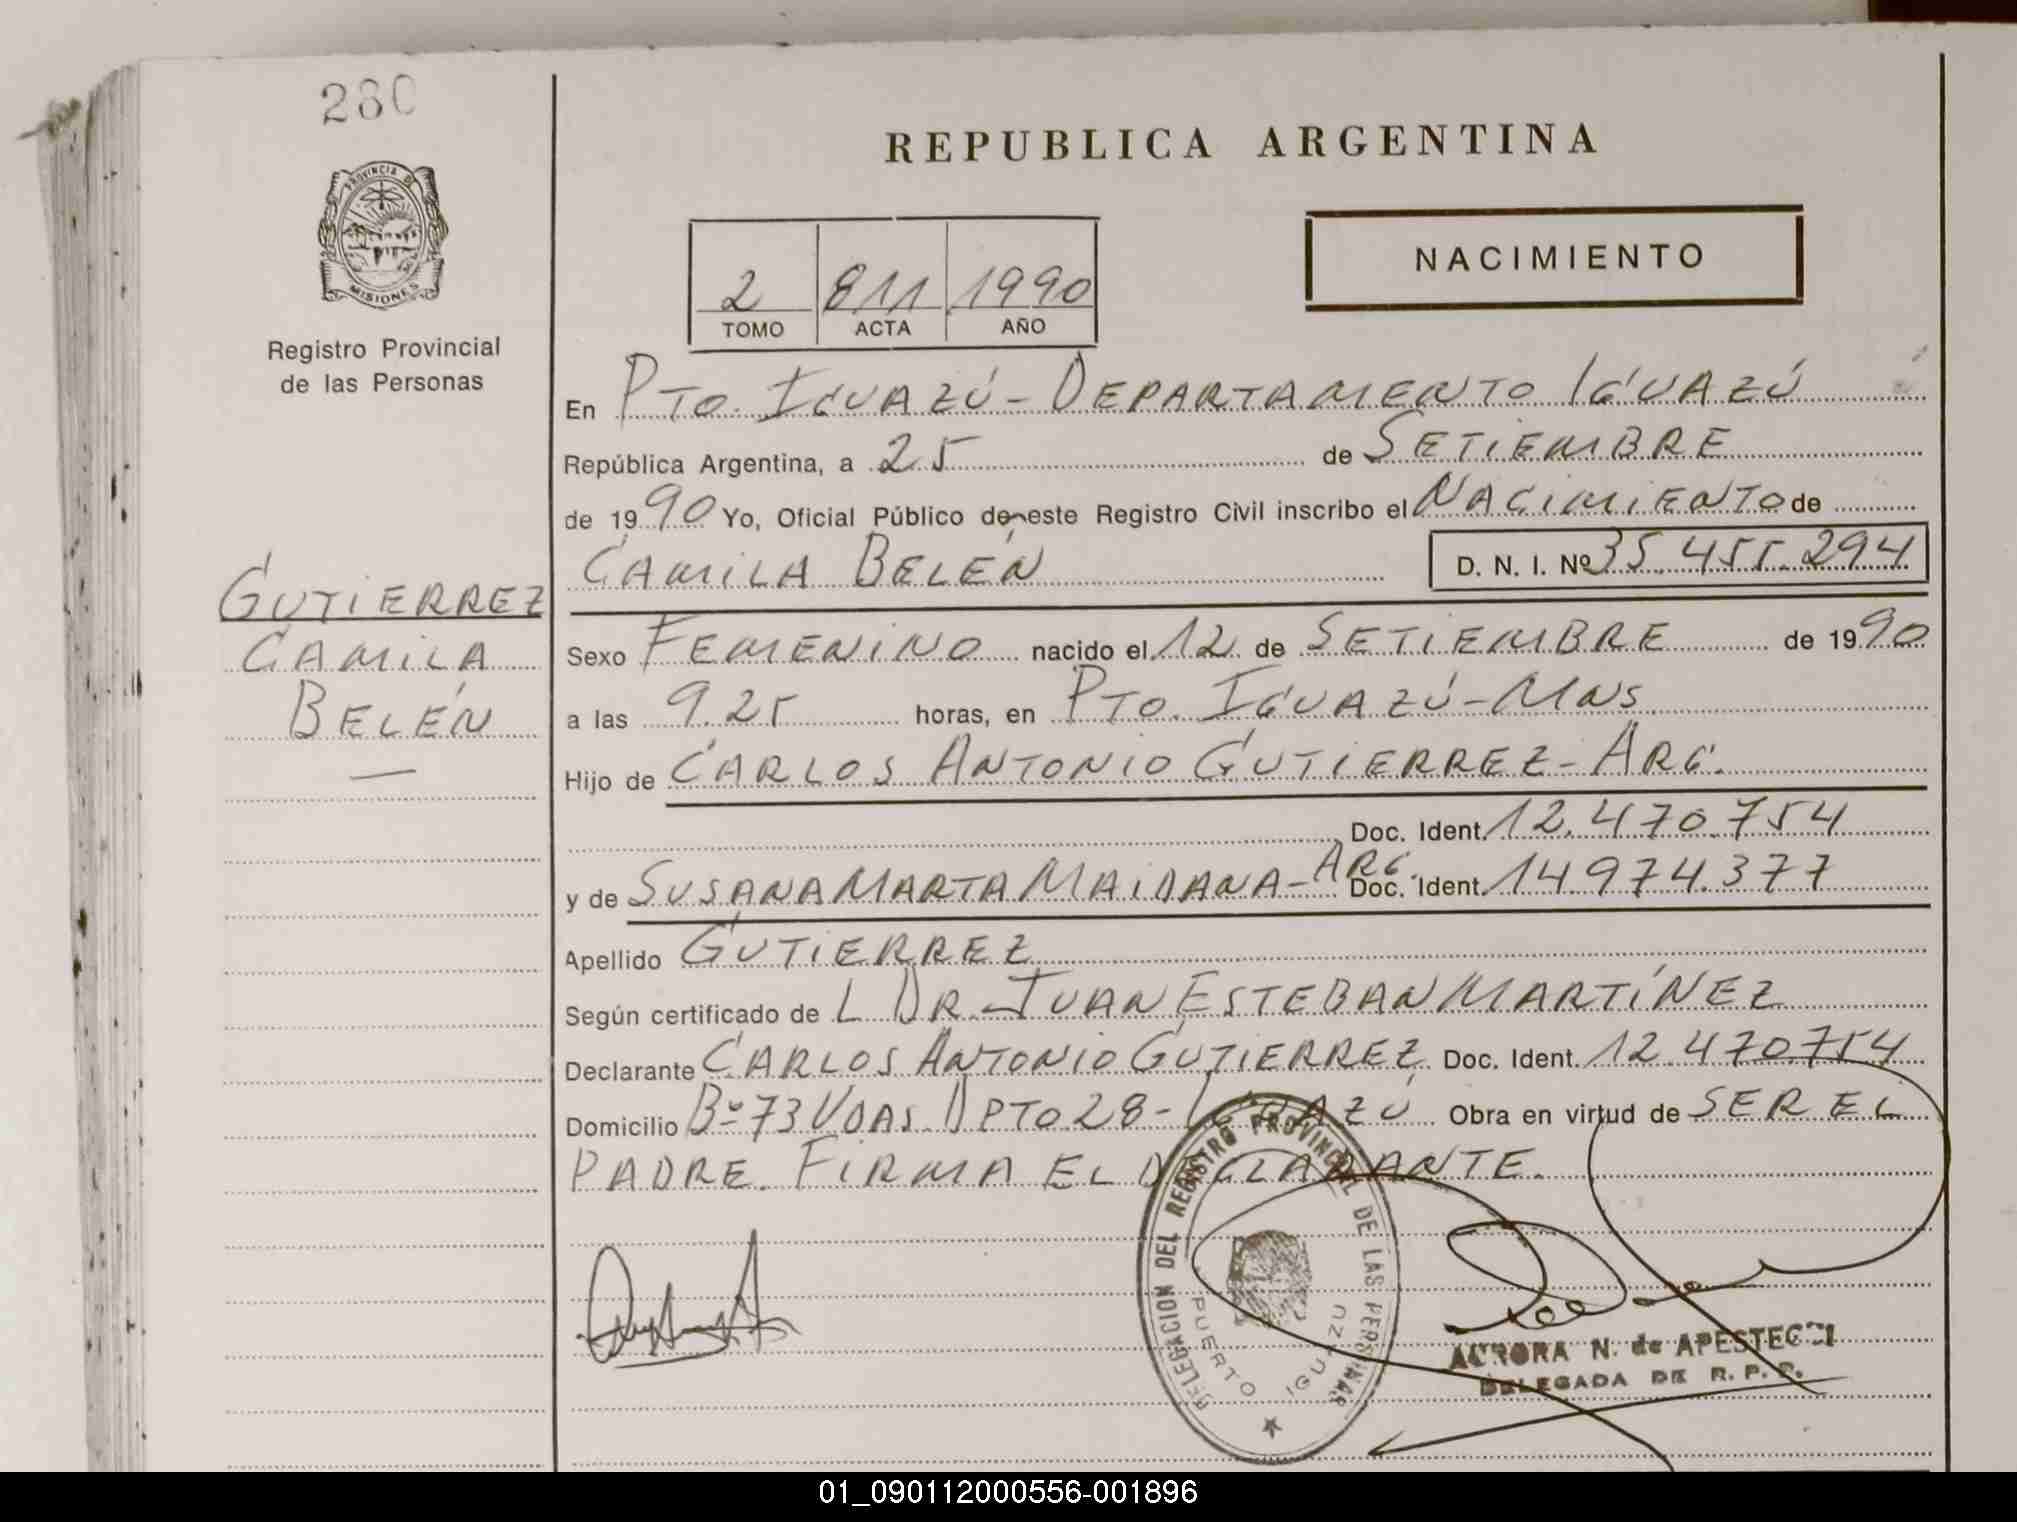 280
PROVINCIA DE
MISIONES
Registro Provincial
de las Personas
GUTIERREZ
CAMILA
BELÉN
—
REPUBLICA ARGENTINA
NACIMIENTO
2 811 1990
TOMO ACTA AÑO
En PTO. IGUAZÚ - DEPARTAMENTO IGUAZÚ
República Argentina, a 25 de SETIEMBRE
de 1990 Yo, Oficial Público de este Registro Civil inscribo el NACIMIENTO de
CAMILA BELÉN D. N. I. Nº 35.455.294
Sexo FEMENINO nacido el 12 de SETIEMBRE de 1990
a las 9.25 horas, en PTO. IGUAZÚ - MNS
Hijo de CARLOS ANTONIO GUTIERREZ - ARG.
Doc. Ident. 12.470.754
y de SUSANA MARTA MAIDANA - ARG. Doc. Ident. 14.974.377
Apellido GUTIERREZ
Según certificado de L DR. JUAN ESTEBAN MARTÍNEZ
Declarante CARLOS ANTONIO GUTIERREZ Doc. Ident. 12.470.754
Domicilio Bº 73 VDAS. DPTO 28 - IGUAZÚ Obra en virtud de SER EL
PADRE. FIRMA EL DECLARANTE.
DELEGACION DEL REGISTRO PROVINCIAL DE LAS PERSONAS
PUERTO IGUAZU
AURORA N. de
DELEGADA DE R. P. P.
01_090112000556-001896